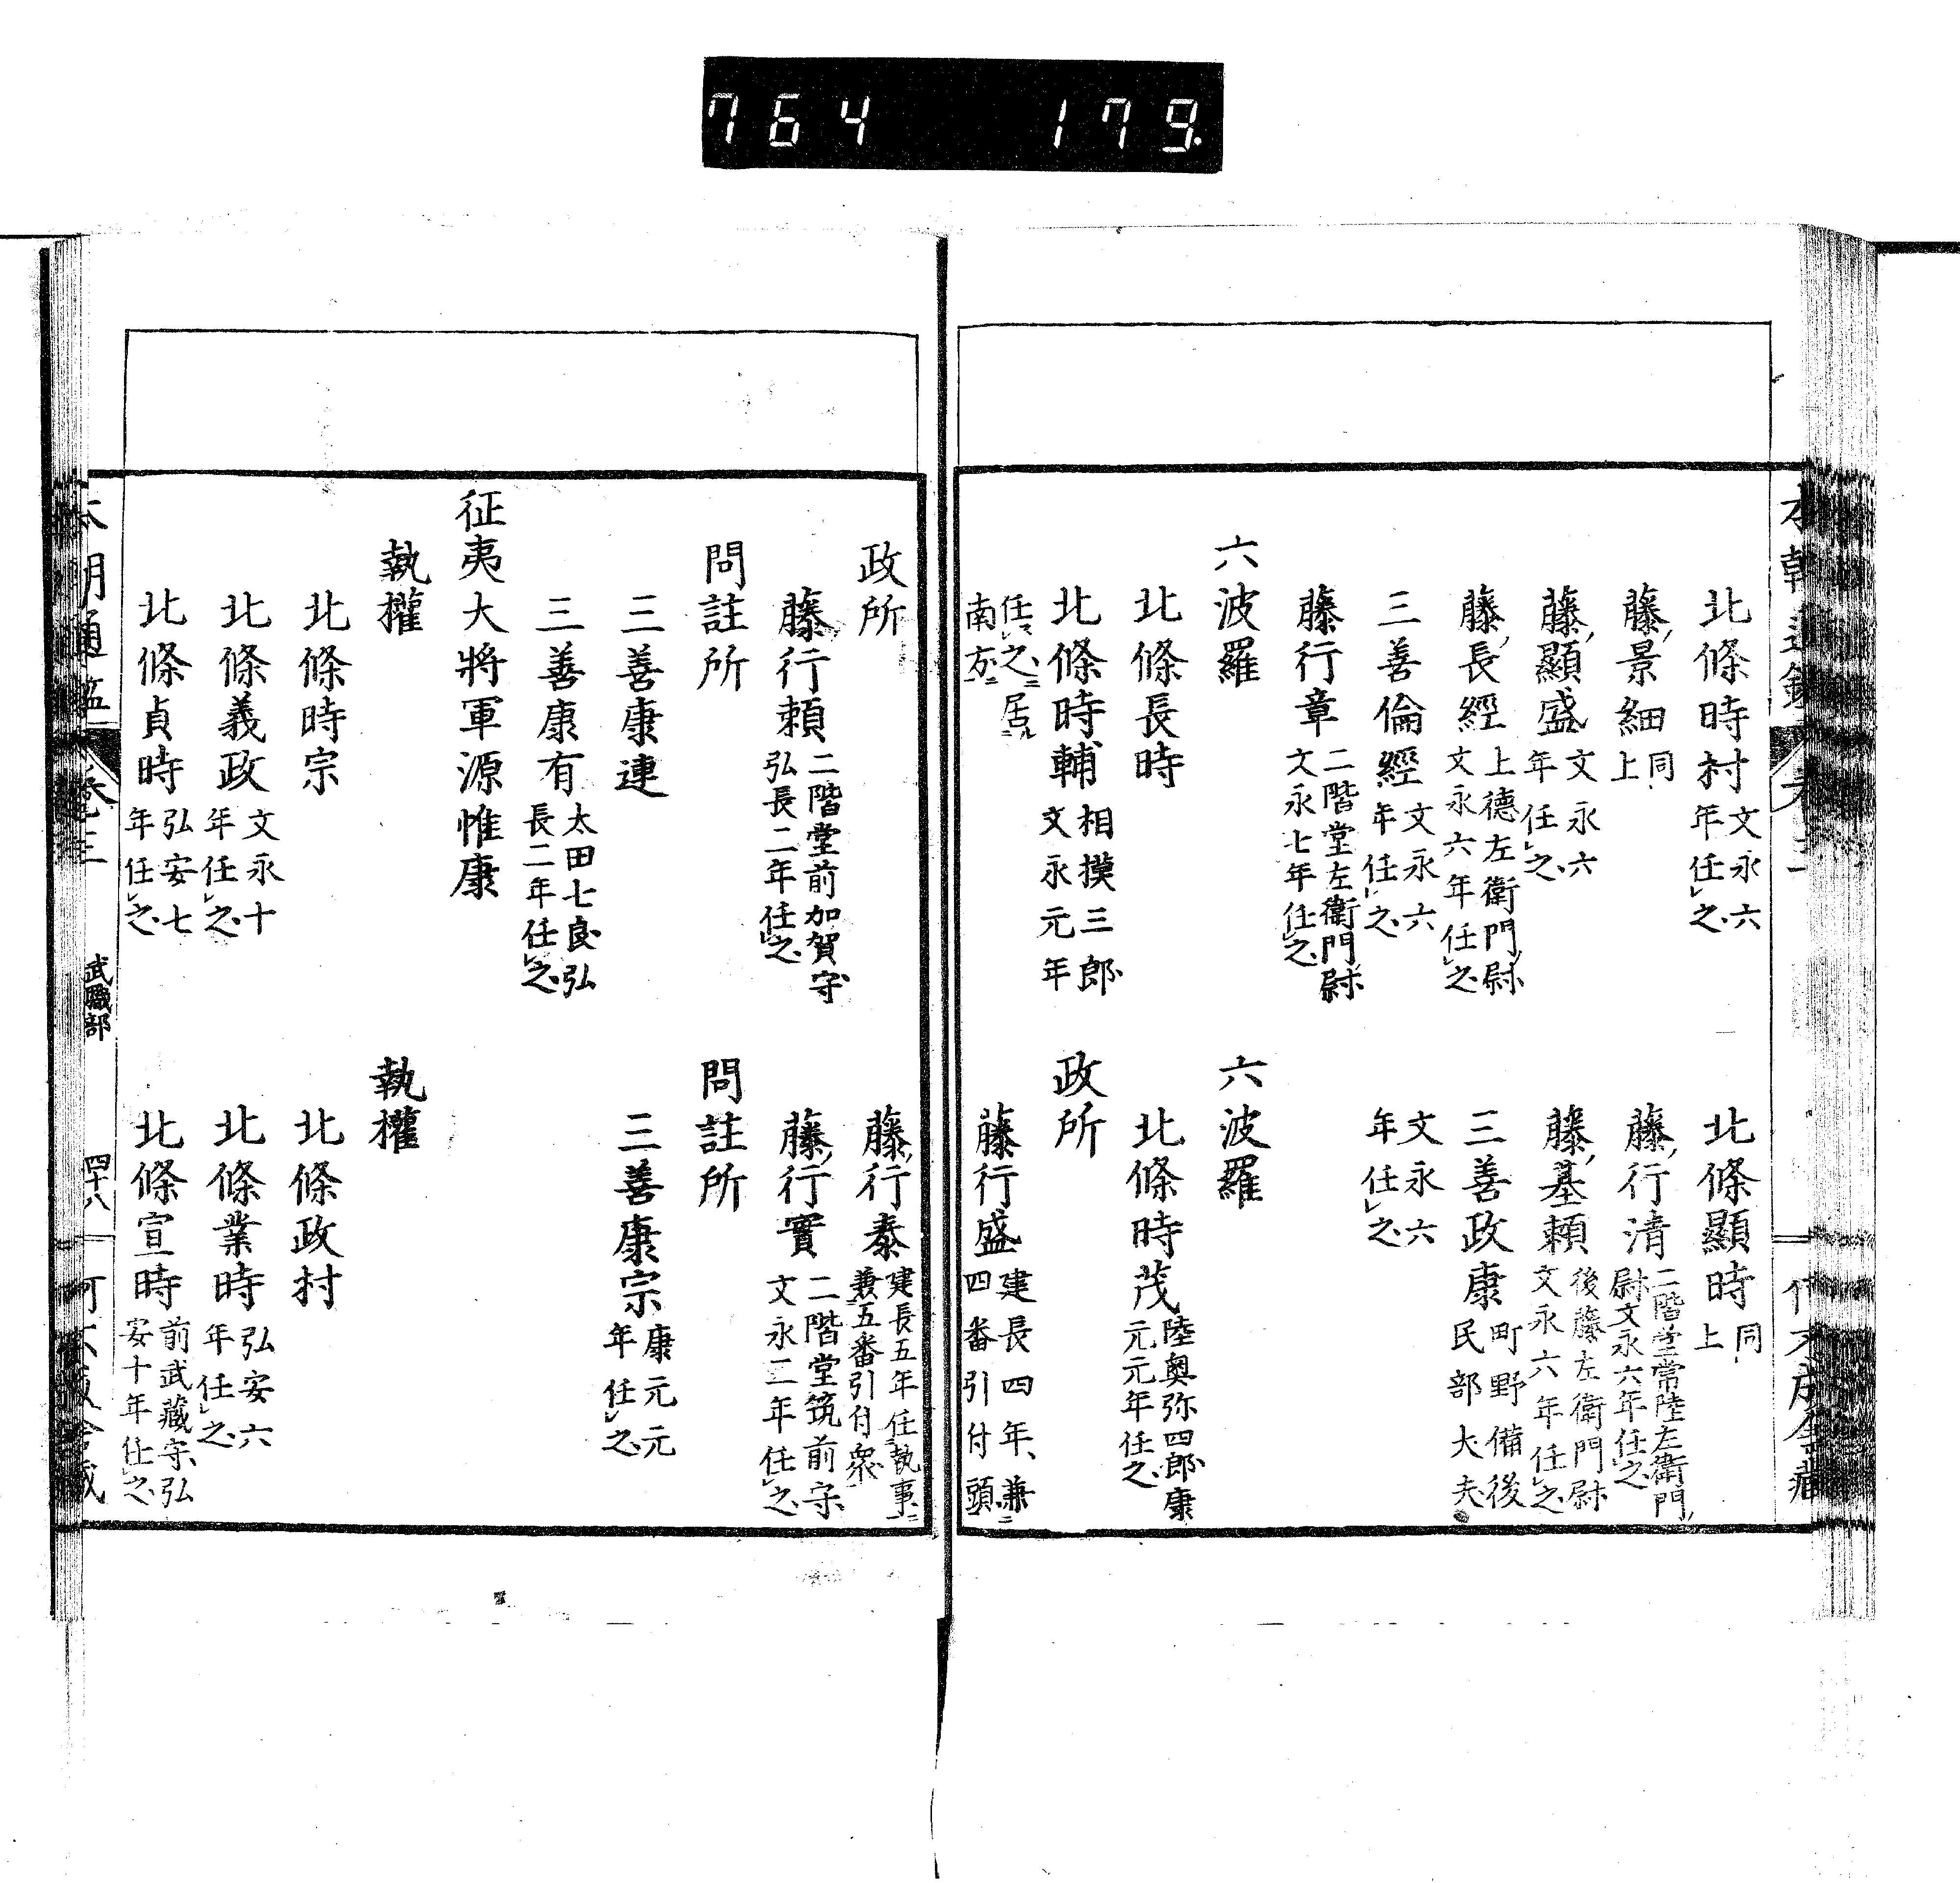 764 179.
北條時村 文永六年任之 北條顯時 同上
藤景細 同上 藤行清 二階堂常陸左衛門尉文永六年任之
藤顯盛 文永六年任之 藤基頼 後藤左衛門尉文永六年任之
藤長經 上德左衛門尉文永六年任之 三善政康 町野備後民部大夫
三善倫經 文永六年任之 文永六年任之
藤行章 二階堂左衛門尉文永七年任之
六波羅 六波羅
北條長時 北條時茂 陸奥弥四郎康元元年任之
北條時輔 相摸三郎文永元年 政所
任之居南方 藤行盛 建長四年兼四番引付頭
政所 藤行泰 建長五年任執事兼五番引付衆
藤行頼 二階堂前加賀守弘長二年任之 藤行實 二階堂筑前守文永二年任之
問註所 問註所
三善康連 三善康宗 康元元年任之
三善康有 太田七良弘長二年任之
征夷大將軍源惟康
執權 執權
北條時宗 北條政村
北條義政 文永十年任之 北條業時 弘安六年任之
北條貞時 弘安七年任之 北條宣時 前武藏守弘安十年任之
武職部 四十八